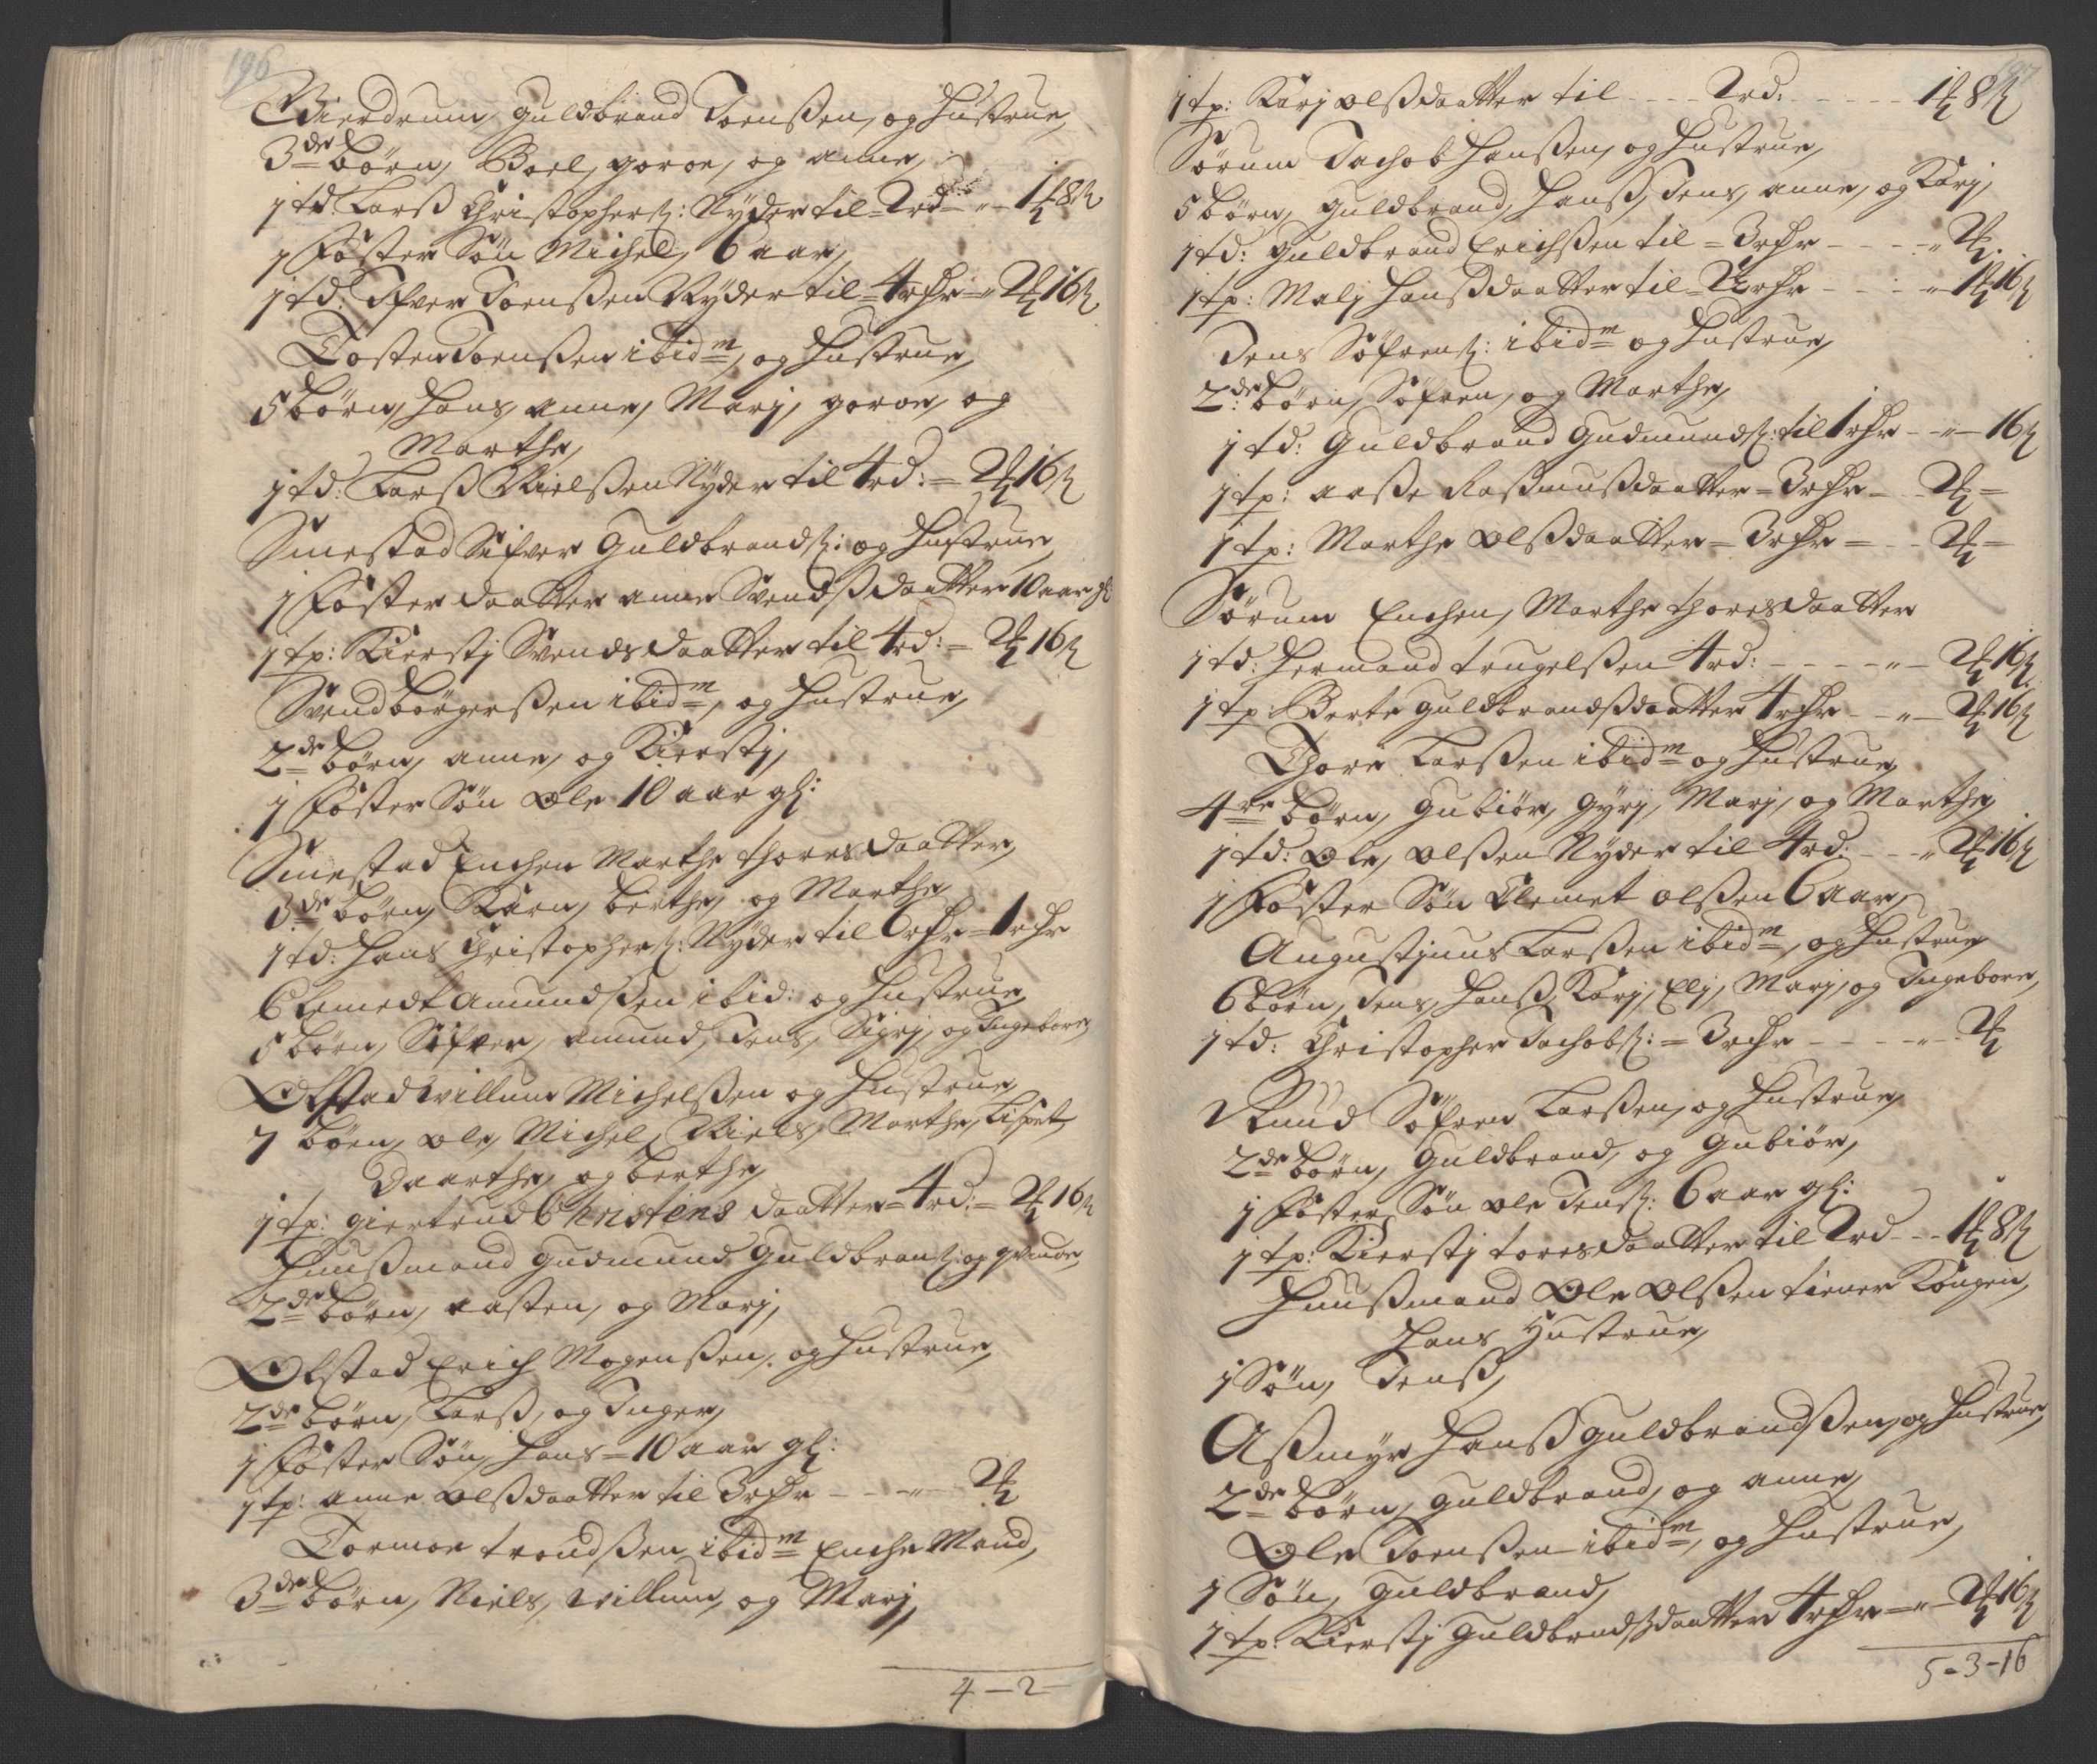 196
Gierdrum Guldbrand Joenßen, og Hustrue,
3de børn, Boel, goroe, og anne,
1 td: Larß Christophers: Ryder til 2rd - 1 8ß
1 Foster Søn Michel, 6 aar,
1 td: Ifver Joenßen Ryder til 4 rdr - 2 16ß
Tosten Joenßen ibidm, og Hustrue,
5 børn, Hans, anne, Marj, goroe, og
Marthe,
1 td: Larß Nielßen Ryder til 4 rd: = 2 16ß
Smestad Sifver Guldbrands: og Hustrue,
1 Foster daatter anne Svendsdaatter 10 aar gl
1 tp: Kierstj Svendsdaatter til 4 rd: = 2 16ß
Svend børgerßen ibidm, og Hustrue,
2de børn, anne, og Kierstj,
1 Foster Søn Ole 10 aar gl:
Smestad Enchen Marthe thoresdaatter,
3de børn, Karn, berthe, og Marthe
1 td: Hans Christophers: Ryder til 6 rdr = 1 rdr
Clemedt Amundßen ibid: og Hustrue,
5 børn, Sifver, amund, Jens, Sigrj, og Ingebore,
Olstad willum Michelßen og Hustrue,
7 børn, Ole, Michel, Niels, Marthe, Lisbet,
Daarthe, og berthe,
1 tp: giertrud Christens daatter = 4 rd: = 2 16ß
Huußmand Gudmund Guldbrans: og qvinde,
2de børn, aasten, og Marj,
Olstad Erich Mogenßen, og Hustrue,
2de børn, Larß, og Inger,
1 Foster Søn, Hans = 10 aar gl:
1 tp: anne Olßdaatter til 3 rdr - - - 2
Tormoe trondßen ibidm Enche Mand,
3de børn, Niels, willum, og Marj,
4 - 2 -
197
1 tp: Karj Olßdaatter til - - - 2rd: - - - - 1 8ß
Sørum Jachob Hanßen, og Hustrue,
5 børn, Guldbrand, Hanß, Jens, anne, og Karj,
1 td: Guldbrand Erichßen til = 3 rdr - - - 2
1 tp: Malj Hanßdaatter til = 2 rdr - - - 1 16ß
Jens Søfrens: ibidm og Hustrue,
2de børn, Søfren, og Marthe,
1 td: Guldbrand Gudmunds: til 1 rdr - - 16ß
1 tp: aaße Raßmußdaatter = 3 rdr - - 2 =
1 tp: Marthe Olßdaatter = 3 rdr = - - 2 =
Sørum Enchen, Marthe thoresdaatter
1 td: Hermand trugelßen 4 rd: - - - - 2 16ß
1 tp: Berte Guldbrandßdaatter 4 rdr - - 2 16ß
Thore Larßen ibidm og Hustrue,
4re børn, Gubiør, Gyrj, Marj, og Marthe,
1 td: Ole, Olßen Ryder til 4 rd: - - 2 16ß
1 Foster Søn Clemet Olßen 6 aar,
Augustjnus Larßen ibidm, og Hustrue,
6 børn, Jens, Hanß, Karj, Elj, Marj, og Ingeborr,
1 td: Christopher Jachobs: = 3 rdr - - - - 2
Ruud Søfren Larßen, og Hustrue,
2de børn, Guldbrand, og Gubiør,
1 Foster Søn Ole Jens: 6 aar gl:
1 tp: Kierstj toresdaatter til 2rd - - 1 8ß
Huußmand Ole Olßen tiener Kongen,
Hans Hustrue,
1 Søn, Jenß,
Aßmyr Hanß Guldbrandßen, og Hustrue,
2de børn, Guldbrand, og anne,
Ole Joenßen ibidm, og Hustrue,
1 Søn, Guldbrand,
1 tp: Kierstj Guldbrndßdaatter 4 rdr - - 2 16ß
5 - 3 - 16